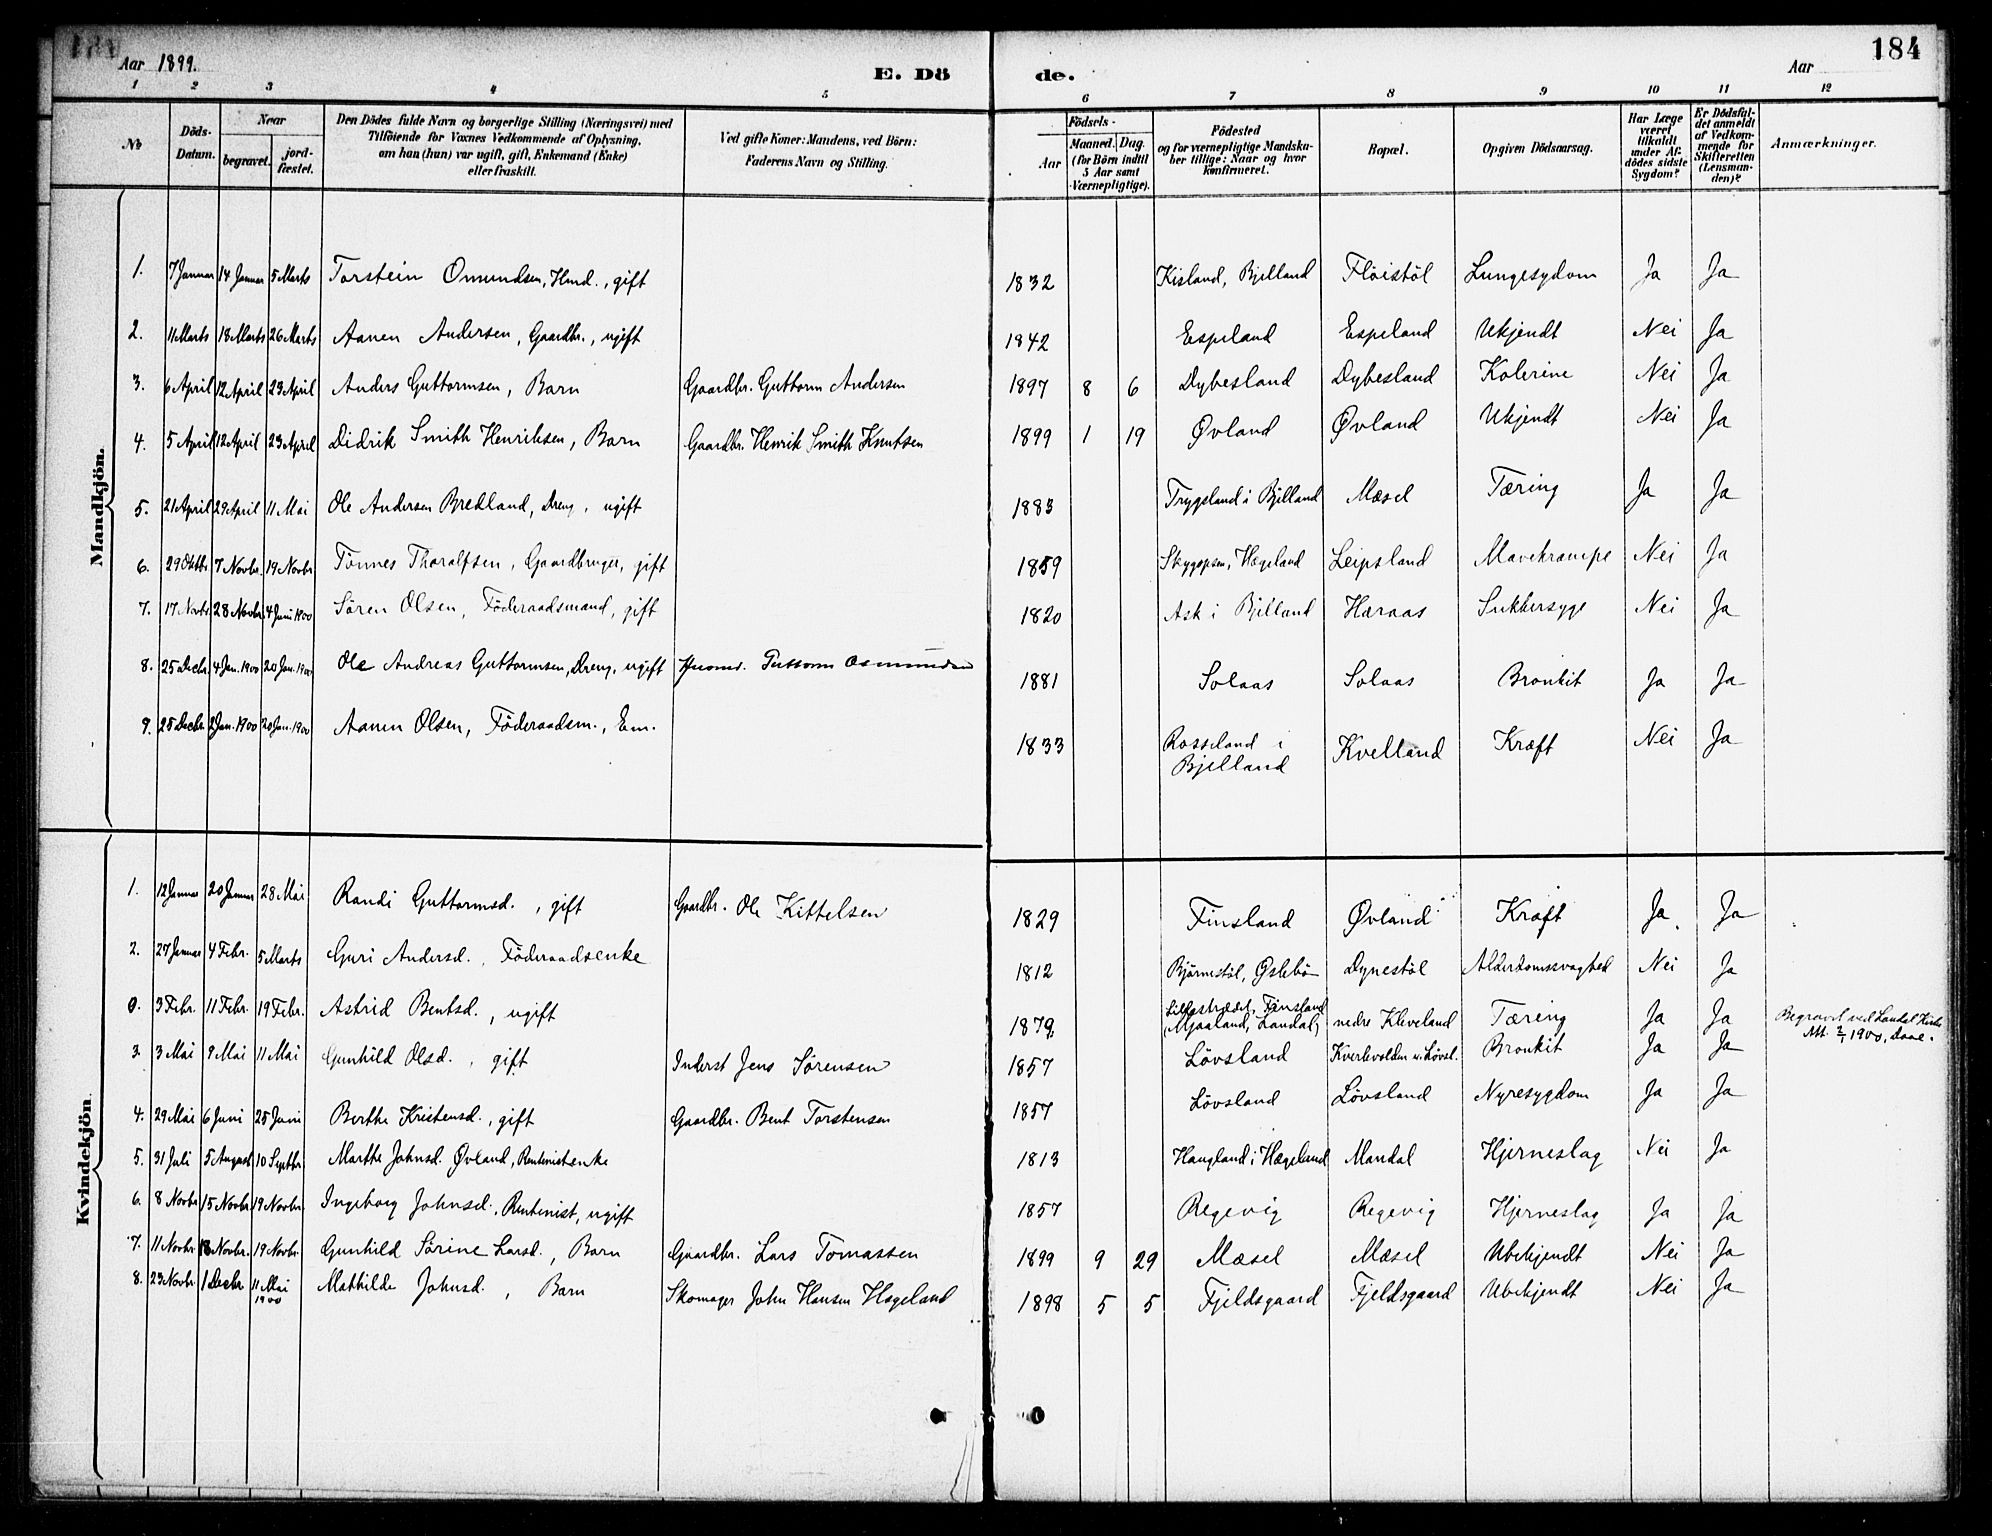 Aar 1899.
E. Dö
de.
Aar
184
1 2 3 4 5 6 7 8 9 10 11 12
№
Döds-Datum.
Naar
begravet.
jord-fæstet.
Den Dödes fulde Navn og borgerlige Stilling (Næringsvei) med
Tilföiende for Voxnes Vedkommende af Oplysning,
om han (hun) var ugift, gift, Enkemand (Enke)
eller fraskilt.
Ved gifte Koner: Mandens, ved Börn:
Faderens Navn og Stilling.
Födsels-
Aar
Maaned. Dag.
(for Börn indtil
5 Aar samt
Værnepligtige).
Födested
og for værnepligtige Mandska-
ber tillige: Naar og hvor
konfirmeret.
Bopæl.
Opgiven Dödsaarsag.
Har Læge
været
tilkaldt
under Af-
dödes sidste
Sygdom?
Er Dödsfal-
det anmeldt
af Vedkom-
mende for
Skifteretten
(Lensman-
den)?
Anmærkninger.
Mandkjön.
1. 7 Januar 14 Januar 5 Marts Torstein Omundsen, Hmd., gift 1832 Kisland, Bjelland Flöistöl Lungesygdom Ja Ja
2. 11 Marts 18 Marts 26 Marts Aanen Andersen, Gaardbr., ugift 1842 Espeland Espeland Ukjendt Nei Ja
3. 6 April 12 April 23 April Anders Guttormsen, Barn Gaardbr. Guttorm Andersen 1897 8 6 Dybesland Dybesland Kolerine Nei Ja
4. 5 April 12 April 23 April Didrik Smith Henriksen, Barn Gaardbr. Henrik Smith Knutsen 1899 1 19 Øvland Øvland Ukjendt Nei Ja
5. 21 April 29 April 11 Mai Ole Andersen Bredland, Dreng, ugift 1883 Trygsland i Bjelland Mæsel Tæring Ja Ja
6. 29 Oktbr 7 Novbr. 19 Novbr Tönnes Tharalfsen, Gaardbruger, gift 1859 Hægeland Leipsland Mavekrampe Nei Ja
7. 17 Novbr 28 Novbr. 4 Juni 1900 Sören Olsen, Föderaadsmand, gift 1820 Ask i Bjelland Haraas Sukkersyge Nei Ja
8. 25 Decbr. 4 Jan. 1900 20 Jan. 1900 Ole Andreas Guttormsen, Dreng, ugift Husmd. Guttorm Osmundsen 1881 Solaas Solaas Bronkit Ja Ja
9. 25 Decbr. 2 Jan. 1900 20 Jan. 1900 Aanen Olsen, Föderaadsm., Em. 1833 Rosseland i Kvelland Kræft Nei Ja
Bjelland
Kvindekjön
1. 12 Januar 20 Januar 28 Mai Randi Guttormsd., gift Gaardbr. Ole Kittelsen 1829 Finsland Øvland Kræft Ja Ja
2. 27 Januar 4 Febr. 5 Marts Guri Andersd., Föderaadsenke 1812 Bjørnestöl, Øslebö Dynestöl Alderdomssvaghed Nei Ja
0. 3 Febr. 11 Febr. 19 Febr. Astrid Bentsd., ugift 1879 Lillestrædet, Finsland nedre Kleveland Tæring Ja Ja Begravet ved Laudal Kirke
(Mjaaland, Laudal) Att. 2/1 1900, Daae.
3. 3 Mai 9 Mai 11 Mai Gunhild Olsd., gift Inderst Jens Sørensen 1857 Lövsland Kverkevolden u. Løvsl. Bronkit Ja Ja
4. 29 Mai 6 Juni 25 Juni Berthe Kristensd., gift Gaardbr. Bent Torstensen 1857 Lövsland Lövsland Nyresygdom Ja Ja
5. 31 Juli 5 August 10 Septbr Marthe Johnsd. Øvland, Rentenistenke 1813 Haugland i Hægeland Mandal Hjerneslag Nei Ja
6. 8 Novbr 15 Novbr 19 Novbr. Ingeborg Johnsd., Rentenist, ugift 1857 Regevig Regevig Hjerneslag Ja Ja
7. 11 Novbr 18 Novbr. 19 Novbr. Gunhild Sørine Larsd., Barn Gaardbr. Lars Tomassen 1899 9 29 Mæsel Mæsel Ubekjendt Nei Ja
8. 23 Novbr. 1 Decbr 11 Mai 1900 Mathilde Johnsd., Barn Skomager John Hansen Hægeland 1898 5 5 Fjeldsgaard Fjeldsgaard Ubekjendt Nei Ja